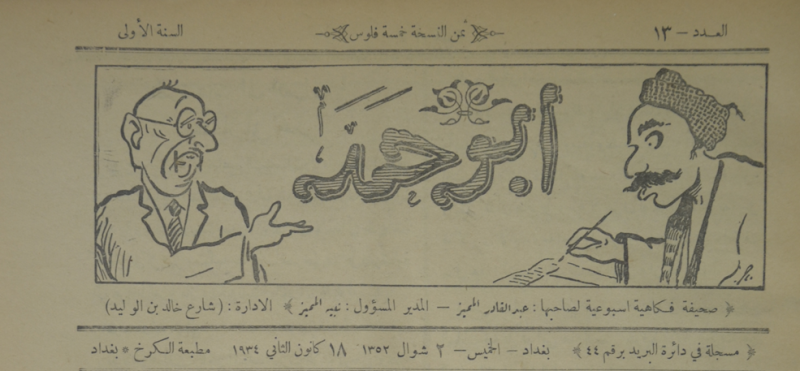 العدد – ١٣ ثمن النسخة خمسة فلوس السنة الأولى
ابو حمد
صحيفة فكاهية اسبوعية لصاحبها : عبدالقادر المميز – المدير المسؤول : نبيه المميز الادارة : ( شارع خالد بن الوليد )
مسجلة في دائرة البريد برقم ٤٤ بغداد – الخميس – ٢ شوال ١٣٥٢ ١٨ كانون الثاني ١٩٣٤ مطبعة الكرخ * بغداد